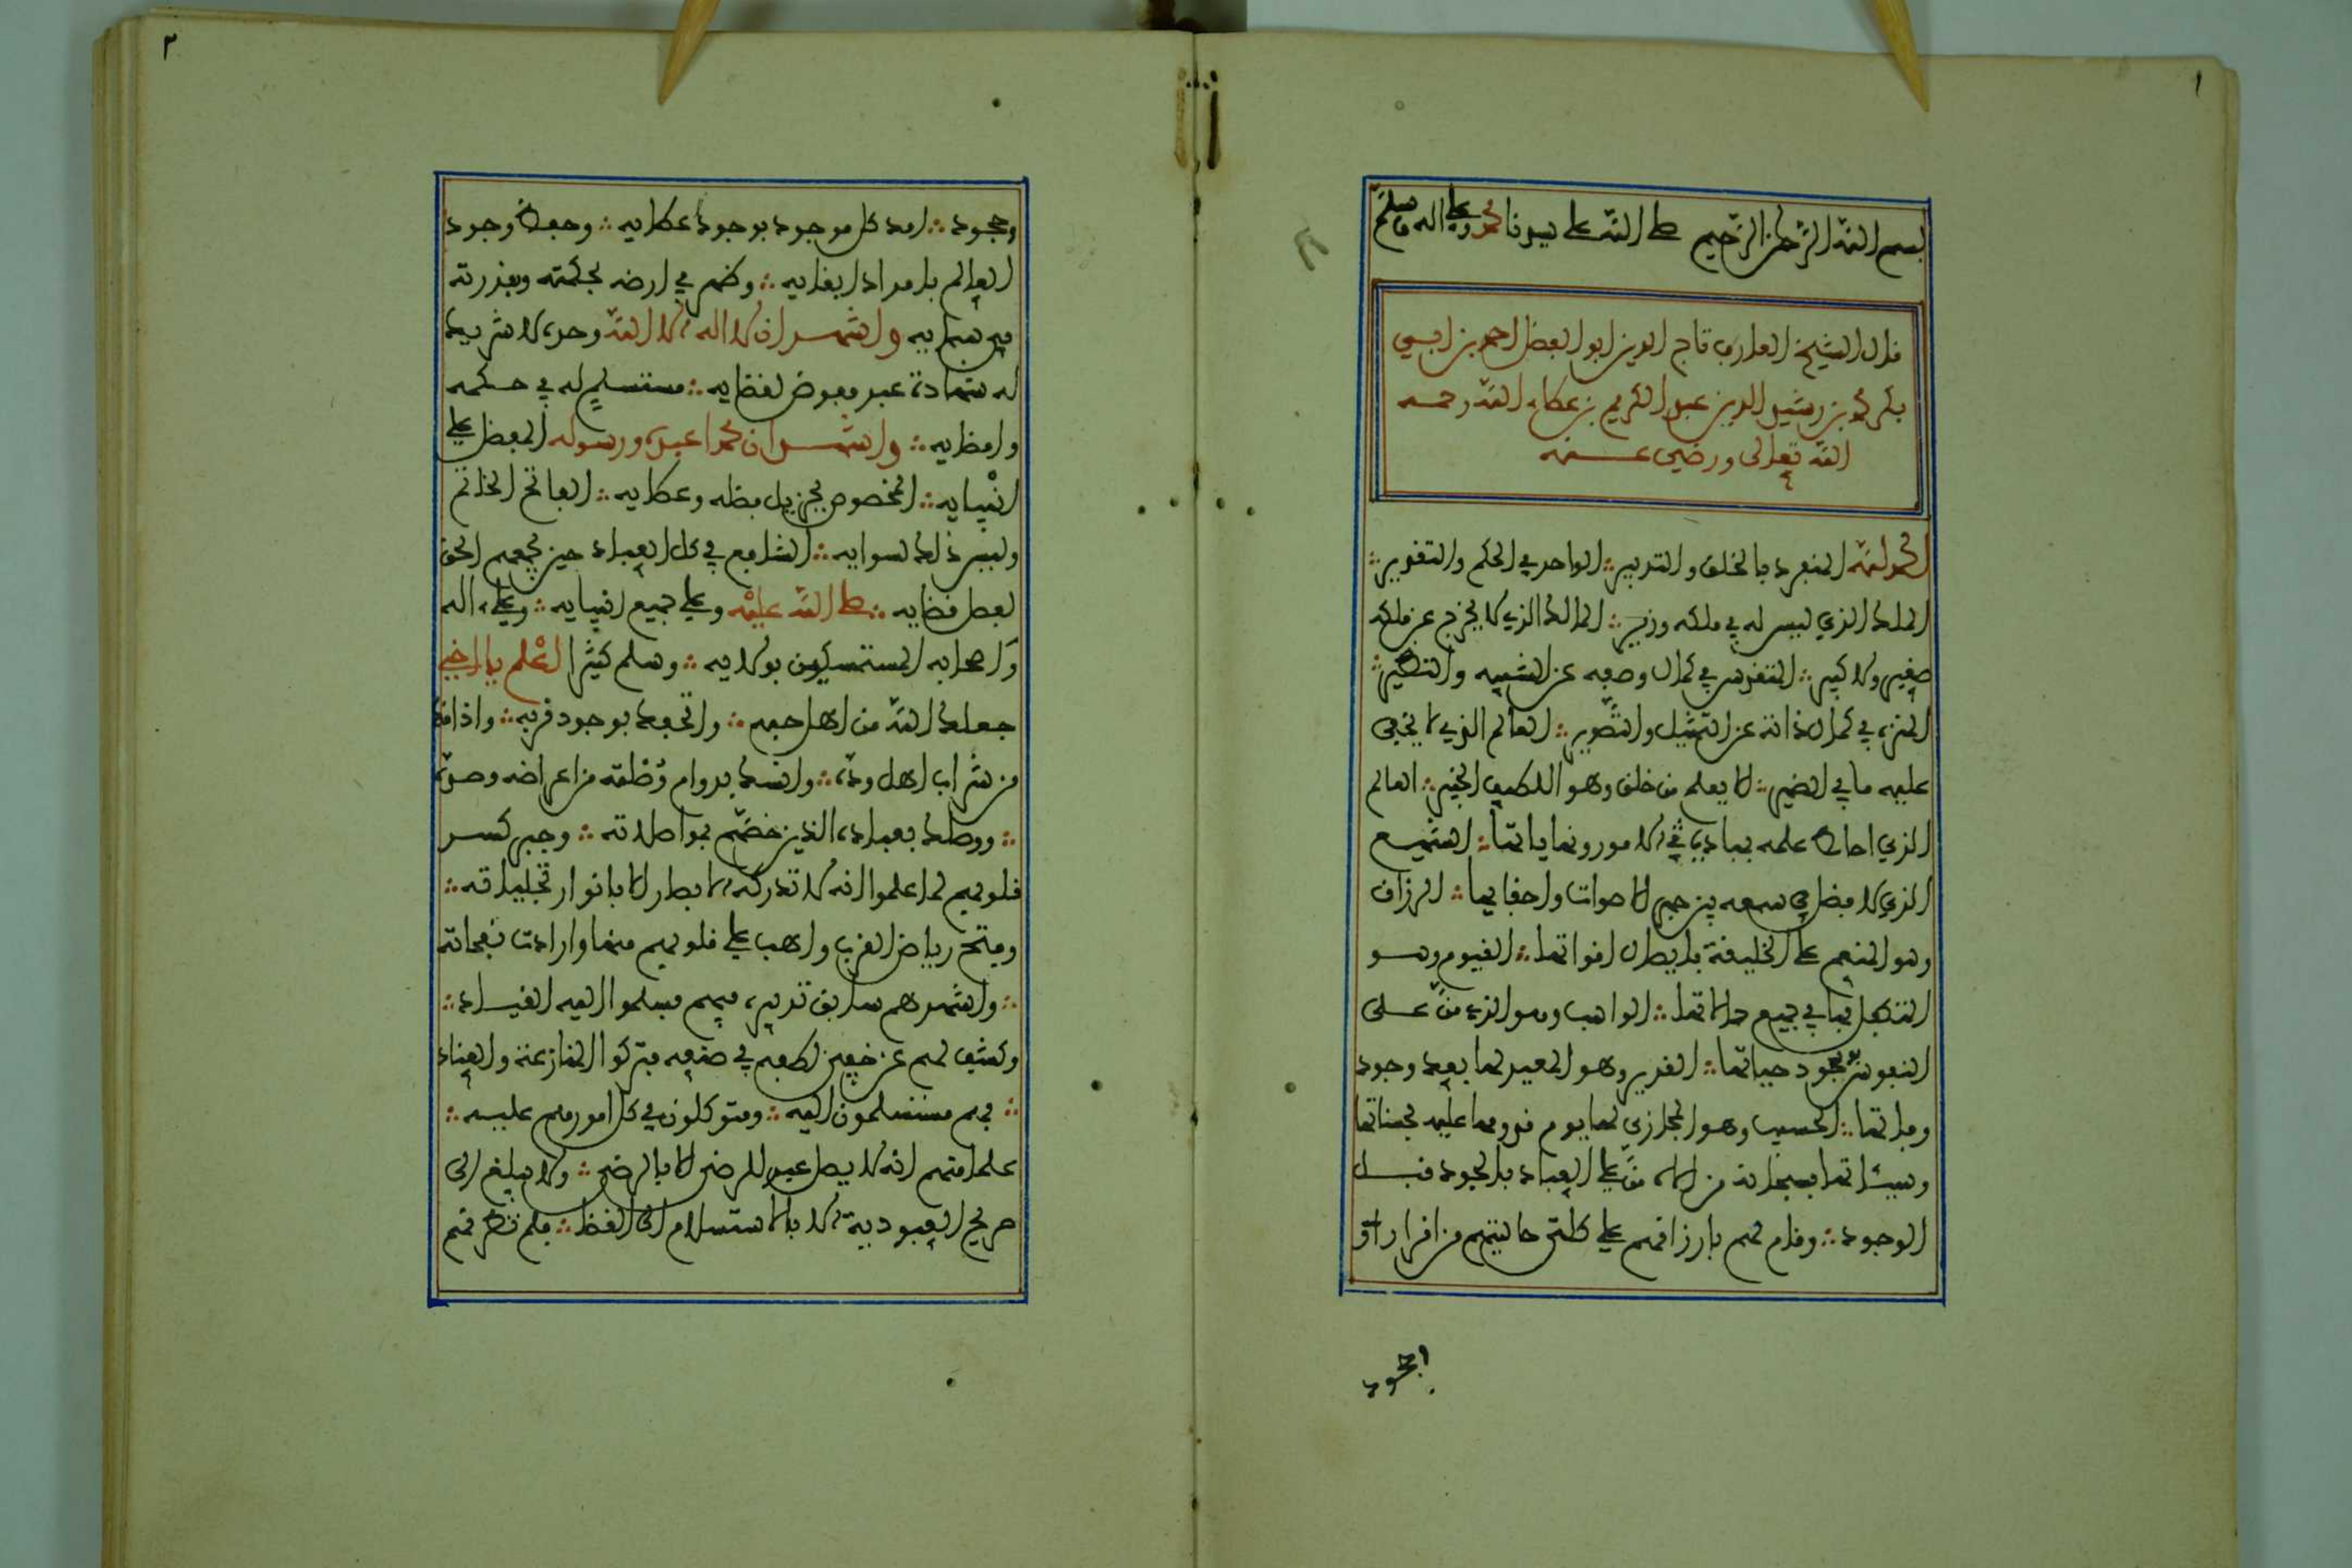 ١
بسم الله الرحمن الرحيم صلى الله على سيدنا محمد وعلى اله وسلم
قال الشيخ العارف تاج الدين ابو الفضل احمد بن ابي
بكر محمد بن رشيد الدين عبد الكريم بن عطاء الله رحمه
الله تعالى ورضي عنه
الحمد لله المنفرد بالخلق والتدبير الواحد في الحكم والتقدير
الملك الذي ليس له في ملكه وزير المالك الذي لا يخرج عن ملكه
صغير ولا كبير المتقدس في كمال وصفه عن الشبيه والنظير
المنزه في كمال ذاته عن التمثيل والتصوير العالم الذي لا يخفى
عليه ما في الضمير الا يعلم من خلق وهو اللطيف الخبير العالم
الذي احاط علمه بمبادي الامور ونهاياتها السميع
الذي لا فضل في سمعه بين جهر الاصوات واخفايها الرزاق
وهو المنعم على الخليقة بايصال اقواتها القيوم وهو
المتكفل بها في جميع حالاتها الواهب وهو الذي من على
النفوس بوجود حياتها القدير وهو المعيد لها بعد وجود
وفاتها الحسيب وهو المجازي لها يوم قدومها عليه بحسناتها
وسيئاتها فسبحانه من اله من على العباد بالجود قبل
الوجود وقام لهم بارزاقهم على كلتى حالتيهم من اقرار او
الجحود
٢
وجحود امد كل موجود بوجود عطايه وحفظ وجود
العالم بامداد ابقايه وظهر في ارضه بحكمته وبقدرته
في سمايه واشهد ان لا اله الا الله وحده لا شريك
له شهادة عبد مفوض لقضايه مستسلم له في حكمه
وامضايه واشهد ان محمدا عبده ورسوله المفضل على
انبيايه المخصوص بجزيل فضله وعطايه الفاتح الخاتم
وليس ذلك لسوايه الشافع في كل العباد حين يجمعهم الحق
لفصل قضايه صلى الله عليه وعلى جميع انبيايه وعلى اله
واصحابه المستمسكين بولايه وسلم كثيرا اعلم يا اخي
جعلك الله من اهل حبه واتحفك بوجود قربه واذاقك
من شراب اهل وده وامنك بدوام وصلته من اعراضه وصده
ووصلك بعباده الذين خصهم بمواصلاته وجبر كسر
قلوبهم لما علموا انه لا تدركه الابصار الا بانوار تجلياته
وفتح رياض القرب واهب على قلوبهم منها واردات نفحاته
واشهدهم سابق تدبيره فيهم فسلموا اليه القياد
وكشف لهم عن خفي لطفه في صنعه فتركوا المنازعة والعناد
فهم مستسلمون اليه ومتوكلون في كل امورهم عليه
علما منهم انه لا يصل عبد للرضى الا بالرضى ولا يبلغ الى
صريح العبودية الا بالاستسلام الى القضا فلم تطرقهم